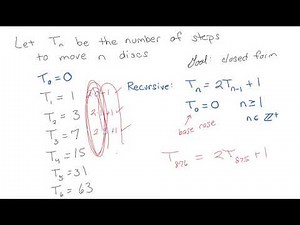 Let Tn be the number of steps
to move n discs
Goal: closed form
T0 = 0
T1 = 1
T2 = 3
T3 = 7
T4 = 15
T5 = 31
T6 = 63
2·1+1
2·3+1
Recursive:
Tn = 2Tn-1 + 1
T0 = 0 n ≥ 1
n ∈ ℤ+
base case
T876 = 2T875 + 1